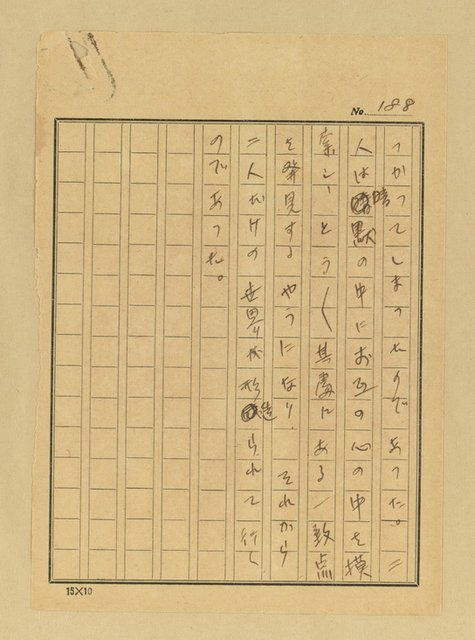 No. 188
つかつてしまつたのであつた。二
人は暗默の中にお互の心の中を摸
索し、とう〱其處にある一致点
を発見するやうになり、それから
二人だけの世界が形造られて行く
のであつた。
15×10